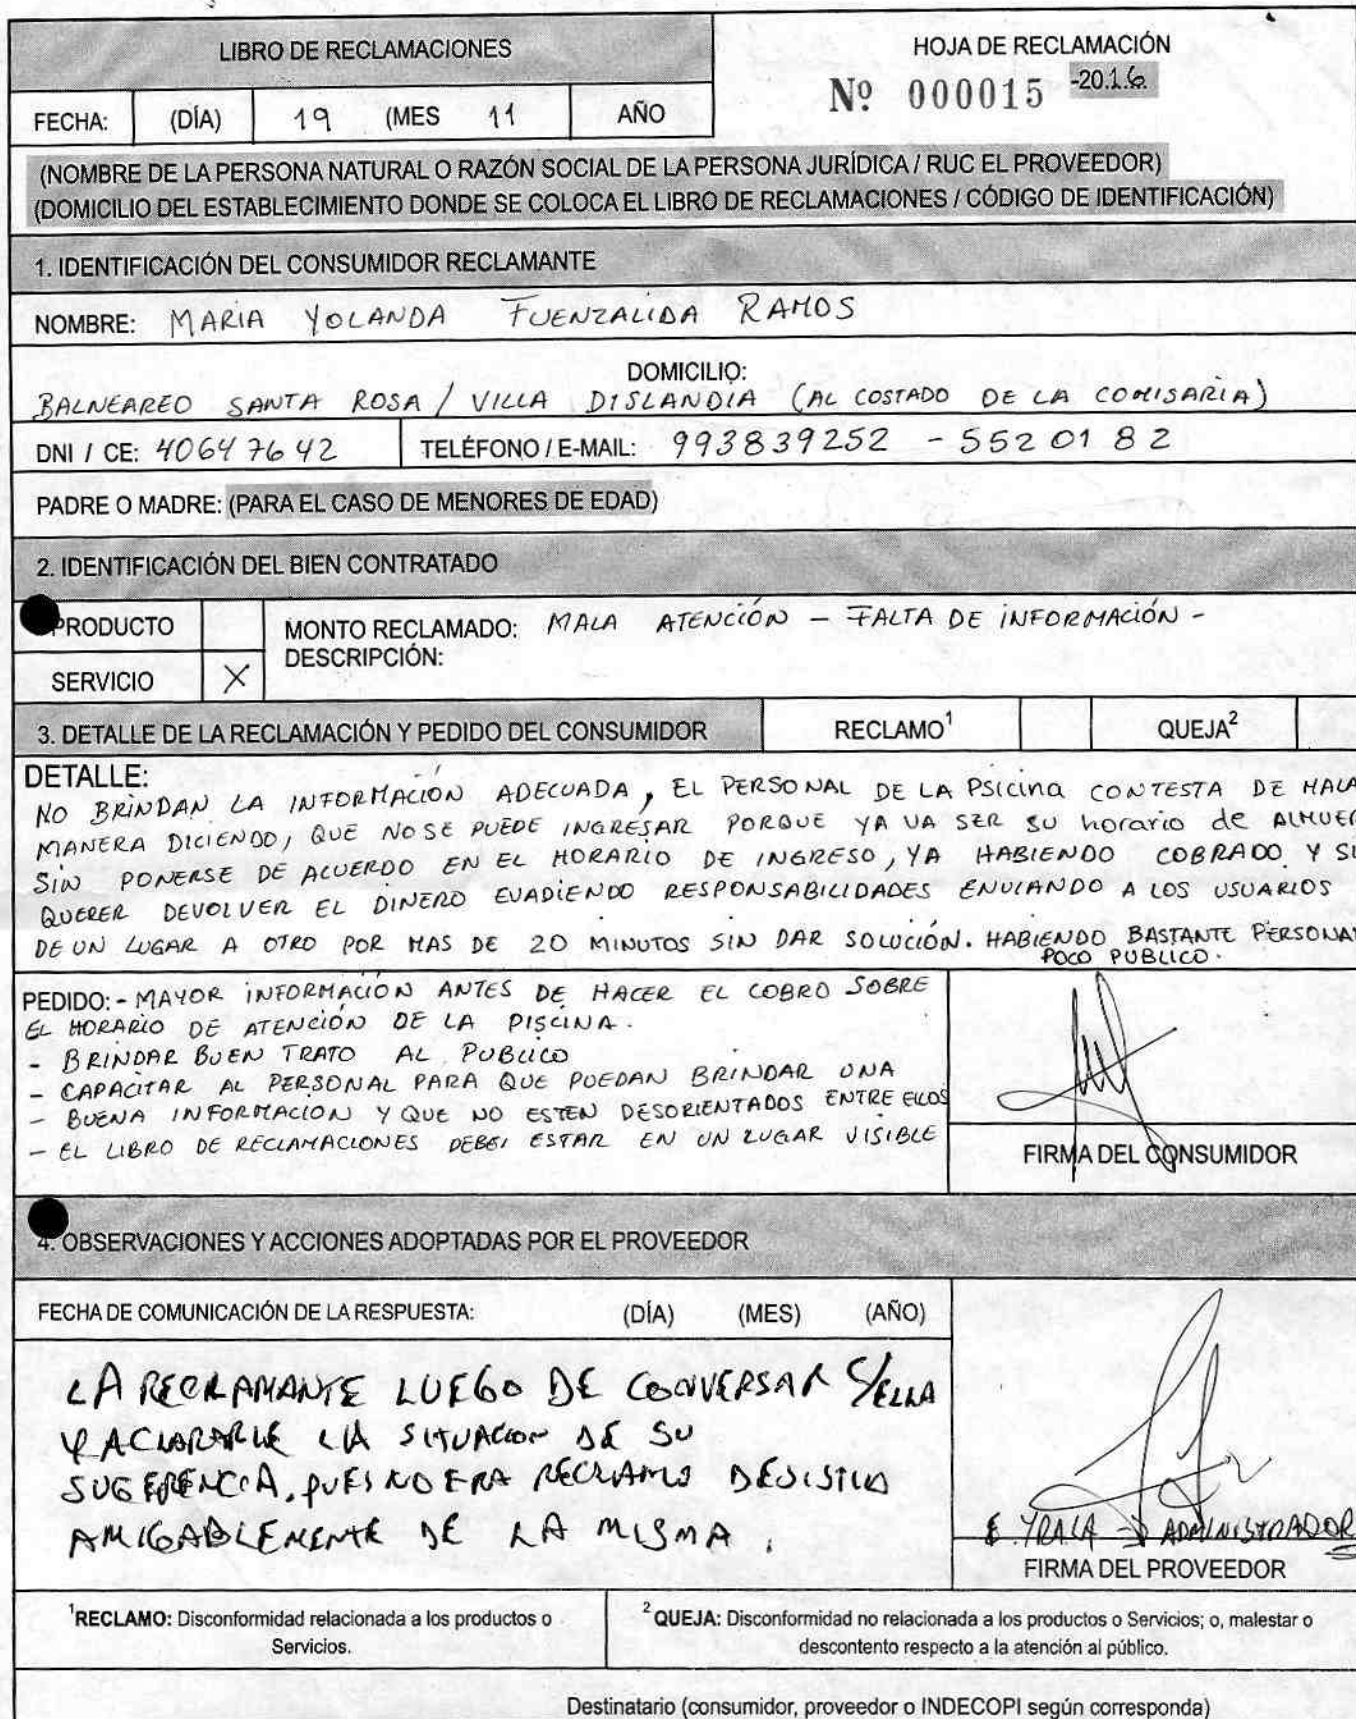 LIBRO DE RECLAMACIONES
HOJA DE RECLAMACIÓN
Nº 000015 -2016
FECHA: (DÍA) 19 (MES 11 AÑO
(NOMBRE DE LA PERSONA NATURAL O RAZÓN SOCIAL DE LA PERSONA JURÍDICA / RUC EL PROVEEDOR)
(DOMICILIO DEL ESTABLECIMIENTO DONDE SE COLOCA EL LIBRO DE RECLAMACIONES / CÓDIGO DE IDENTIFICACIÓN)
1. IDENTIFICACIÓN DEL CONSUMIDOR RECLAMANTE
NOMBRE: MARIA YOLANDA FUENZALIDA RAMOS
DOMICILIO:
BALNEAREO SANTA ROSA / VILLA DISLANDIA (AL COSTADO DE LA COMISARÍA)
DNI / CE: 40647642 TELÉFONO / E-MAIL: 993839252 - 5520182
PADRE O MADRE: (PARA EL CASO DE MENORES DE EDAD)
2. IDENTIFICACIÓN DEL BIEN CONTRATADO
PRODUCTO
MONTO RECLAMADO: MALA ATENCIÓN - FALTA DE INFORMACIÓN -
DESCRIPCIÓN:
SERVICIO X
3. DETALLE DE LA RECLAMACIÓN Y PEDIDO DEL CONSUMIDOR RECLAMO¹ QUEJA²
DETALLE:
NO BRINDAN LA INFORMACIÓN ADECUADA, EL PERSONAL DE LA PSICINA CONTESTA DE MALA
MANERA DICIENDO, QUE NO SE PUEDE INGRESAR PORQUE YA VA SER SU horario de ALMUER
SIN PONERSE DE ACUERDO EN EL HORARIO DE INGRESO, YA HABIENDO COBRADO Y SI
QUERER DEVOLVER EL DINERO EVADIENDO RESPONSABILIDADES ENVIANDO A LOS USUARIOS
DE UN LUGAR A OTRO POR MAS DE 20 MINUTOS SIN DAR SOLUCIÓN. HABIENDO BASTANTE PERSONA
POCO PUBLICO.
PEDIDO: - MAYOR INFORMACIÓN ANTES DE HACER EL COBRO SOBRE
EL HORARIO DE ATENCIÓN DE LA PISCINA.
- BRINDAR BUEN TRATO AL PUBLICO
- CAPACITAR AL PERSONAL PARA QUE PUEDAN BRINDAR UNA
- BUENA INFORMACION Y QUE NO ESTEN DESORIENTADOS ENTRE ELLOS
- EL LIBRO DE RECLAMACIONES DEBE ESTAR EN UN LUGAR VISIBLE
FIRMA DEL CONSUMIDOR
4. OBSERVACIONES Y ACCIONES ADOPTADAS POR EL PROVEEDOR
FECHA DE COMUNICACIÓN DE LA RESPUESTA: (DÍA) (MES) (AÑO)
LA RECLAMANTE LUEGO DE CONVERSAR C/ELLA
Y ACLARARLE LA SITUACION DE SU
SUGERENCIA, PUES NO ERA RECLAMO DESISTIO
AMIGABLEMENTE DE LA MISMA.
E. YRALA - ADMINISTRADOR
FIRMA DEL PROVEEDOR
¹RECLAMO: Disconformidad relacionada a los productos o
Servicios.
² QUEJA: Disconformidad no relacionada a los productos o Servicios; o, malestar o
descontento respecto a la atención al público.
Destinatario (consumidor, proveedor o INDECOPI según corresponda)